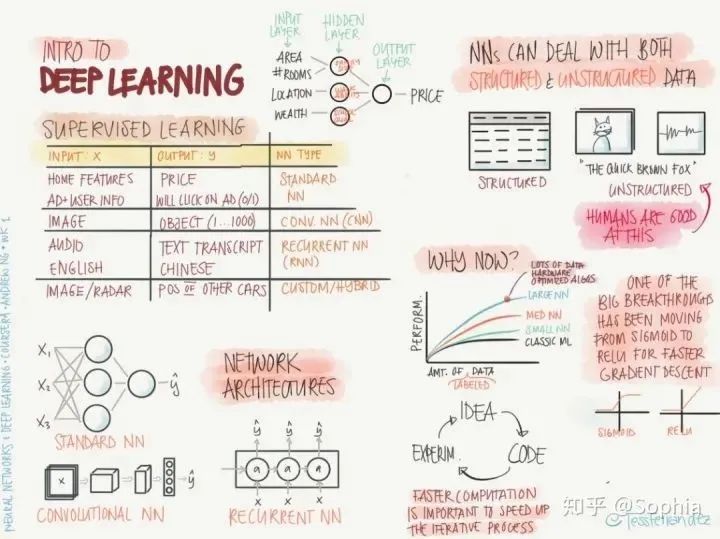 INTRO TO
DEEP LEARNING
INPUT LAYER
HIDDEN LAYER
OUTPUT LAYER
AREA
# ROOMS
LOCATION
WEALTH
PRICE
SUPERVISED LEARNING
INPUT: X OUTPUT: Y NN TYPE
HOME FEATURES PRICE STANDARD
AD+USER INFO WILL CLICK ON AD (0/1) NN
IMAGE OBJECT (1...1000) CONV. NN (CNN)
AUDIO TEXT TRANSCRIPT RECURRENT NN
ENGLISH CHINESE (RNN)
IMAGE/RADAR POS OF OTHER CARS CUSTOM/HYBRID
NNs CAN DEAL WITH BOTH
STRUCTURED & UNSTRUCTURED DATA
STRUCTURED
"THE QUICK BROWN FOX"
UNSTRUCTURED
HUMANS ARE GOOD
AT THIS
WHY NOW?
LOTS OF DATA
HARDWARE
OPTIMIZED ALGOS
LARGE NN
MED NN
SMALL NN
CLASSIC ML
PERFORM.
AMT. OF DATA
LABELED
ONE OF THE
BIG BREAKTHROUGHS
HAS BEEN MOVING
FROM SIGMOID TO
RELU FOR FASTER
GRADIENT DESCENT
SIGMOID RELU
X₁
X₂
X₃
ŷ
STANDARD NN
NETWORK
ARCHITECTURES
X
ŷ
CONVOLUTIONAL NN
ŷ ŷ ŷ
a a a
X X X
RECURRENT NN
IDEA
CODE
EXPERIM.
FASTER COMPUTATION
IS IMPORTANT TO SPEED UP
THE ITERATIVE PROCESS
NEURAL NETWORKS & DEEP LEARNING · COURSERA · ANDREW NG · WK 1
知乎 @Sophia